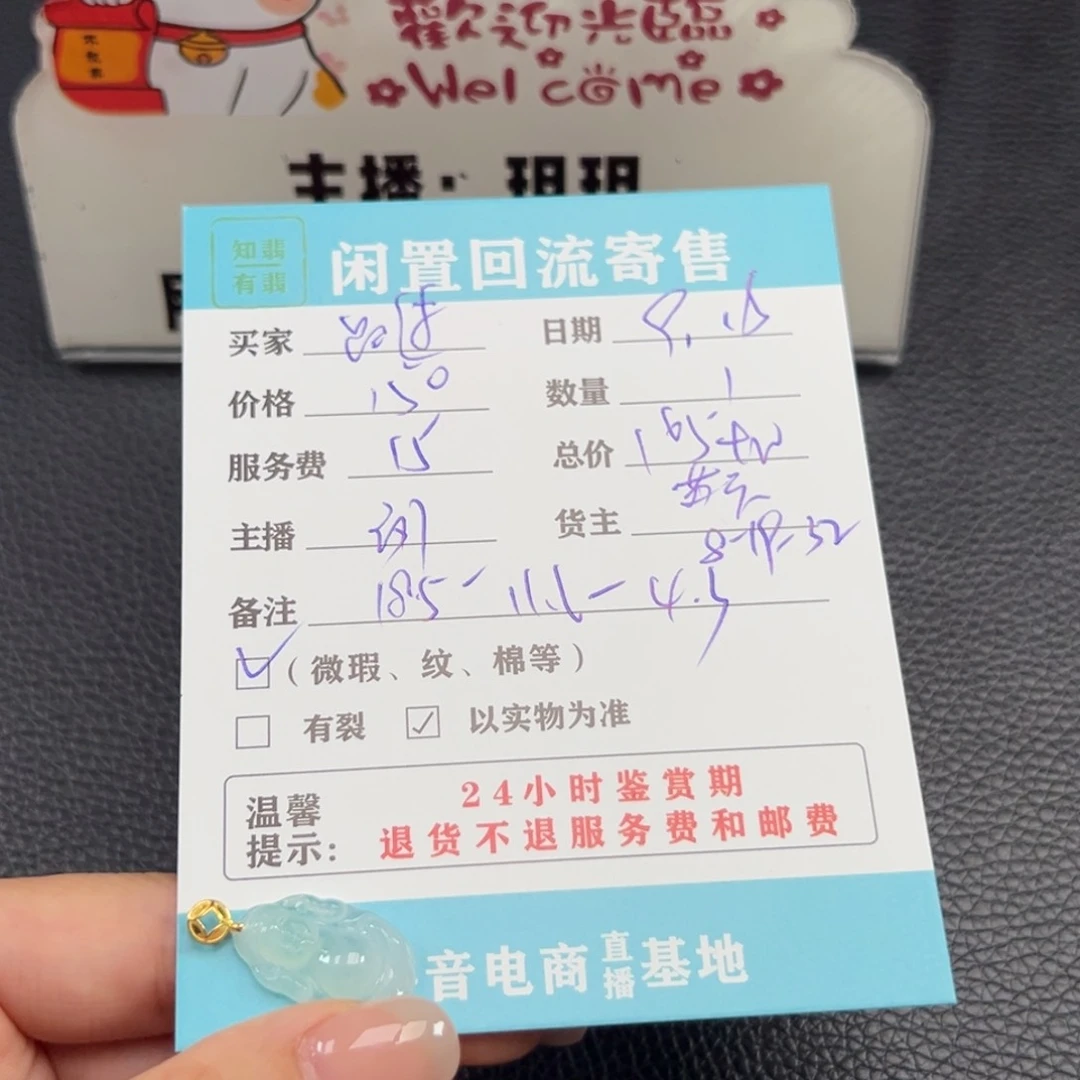 歡迎光臨
Welcome
主播：玥玥
知翡
有翡
闲置回流寄售
买家 日期
价格 150 数量 1
服务费 15 总价 165+12
主播 货主 8-19-52
备注 18.5-11.6-4.5
（微瑕、纹、棉等）
有裂 以实物为准
温馨
提示:
24小时鉴赏期
退货不退服务费和邮费
音电商直播基地